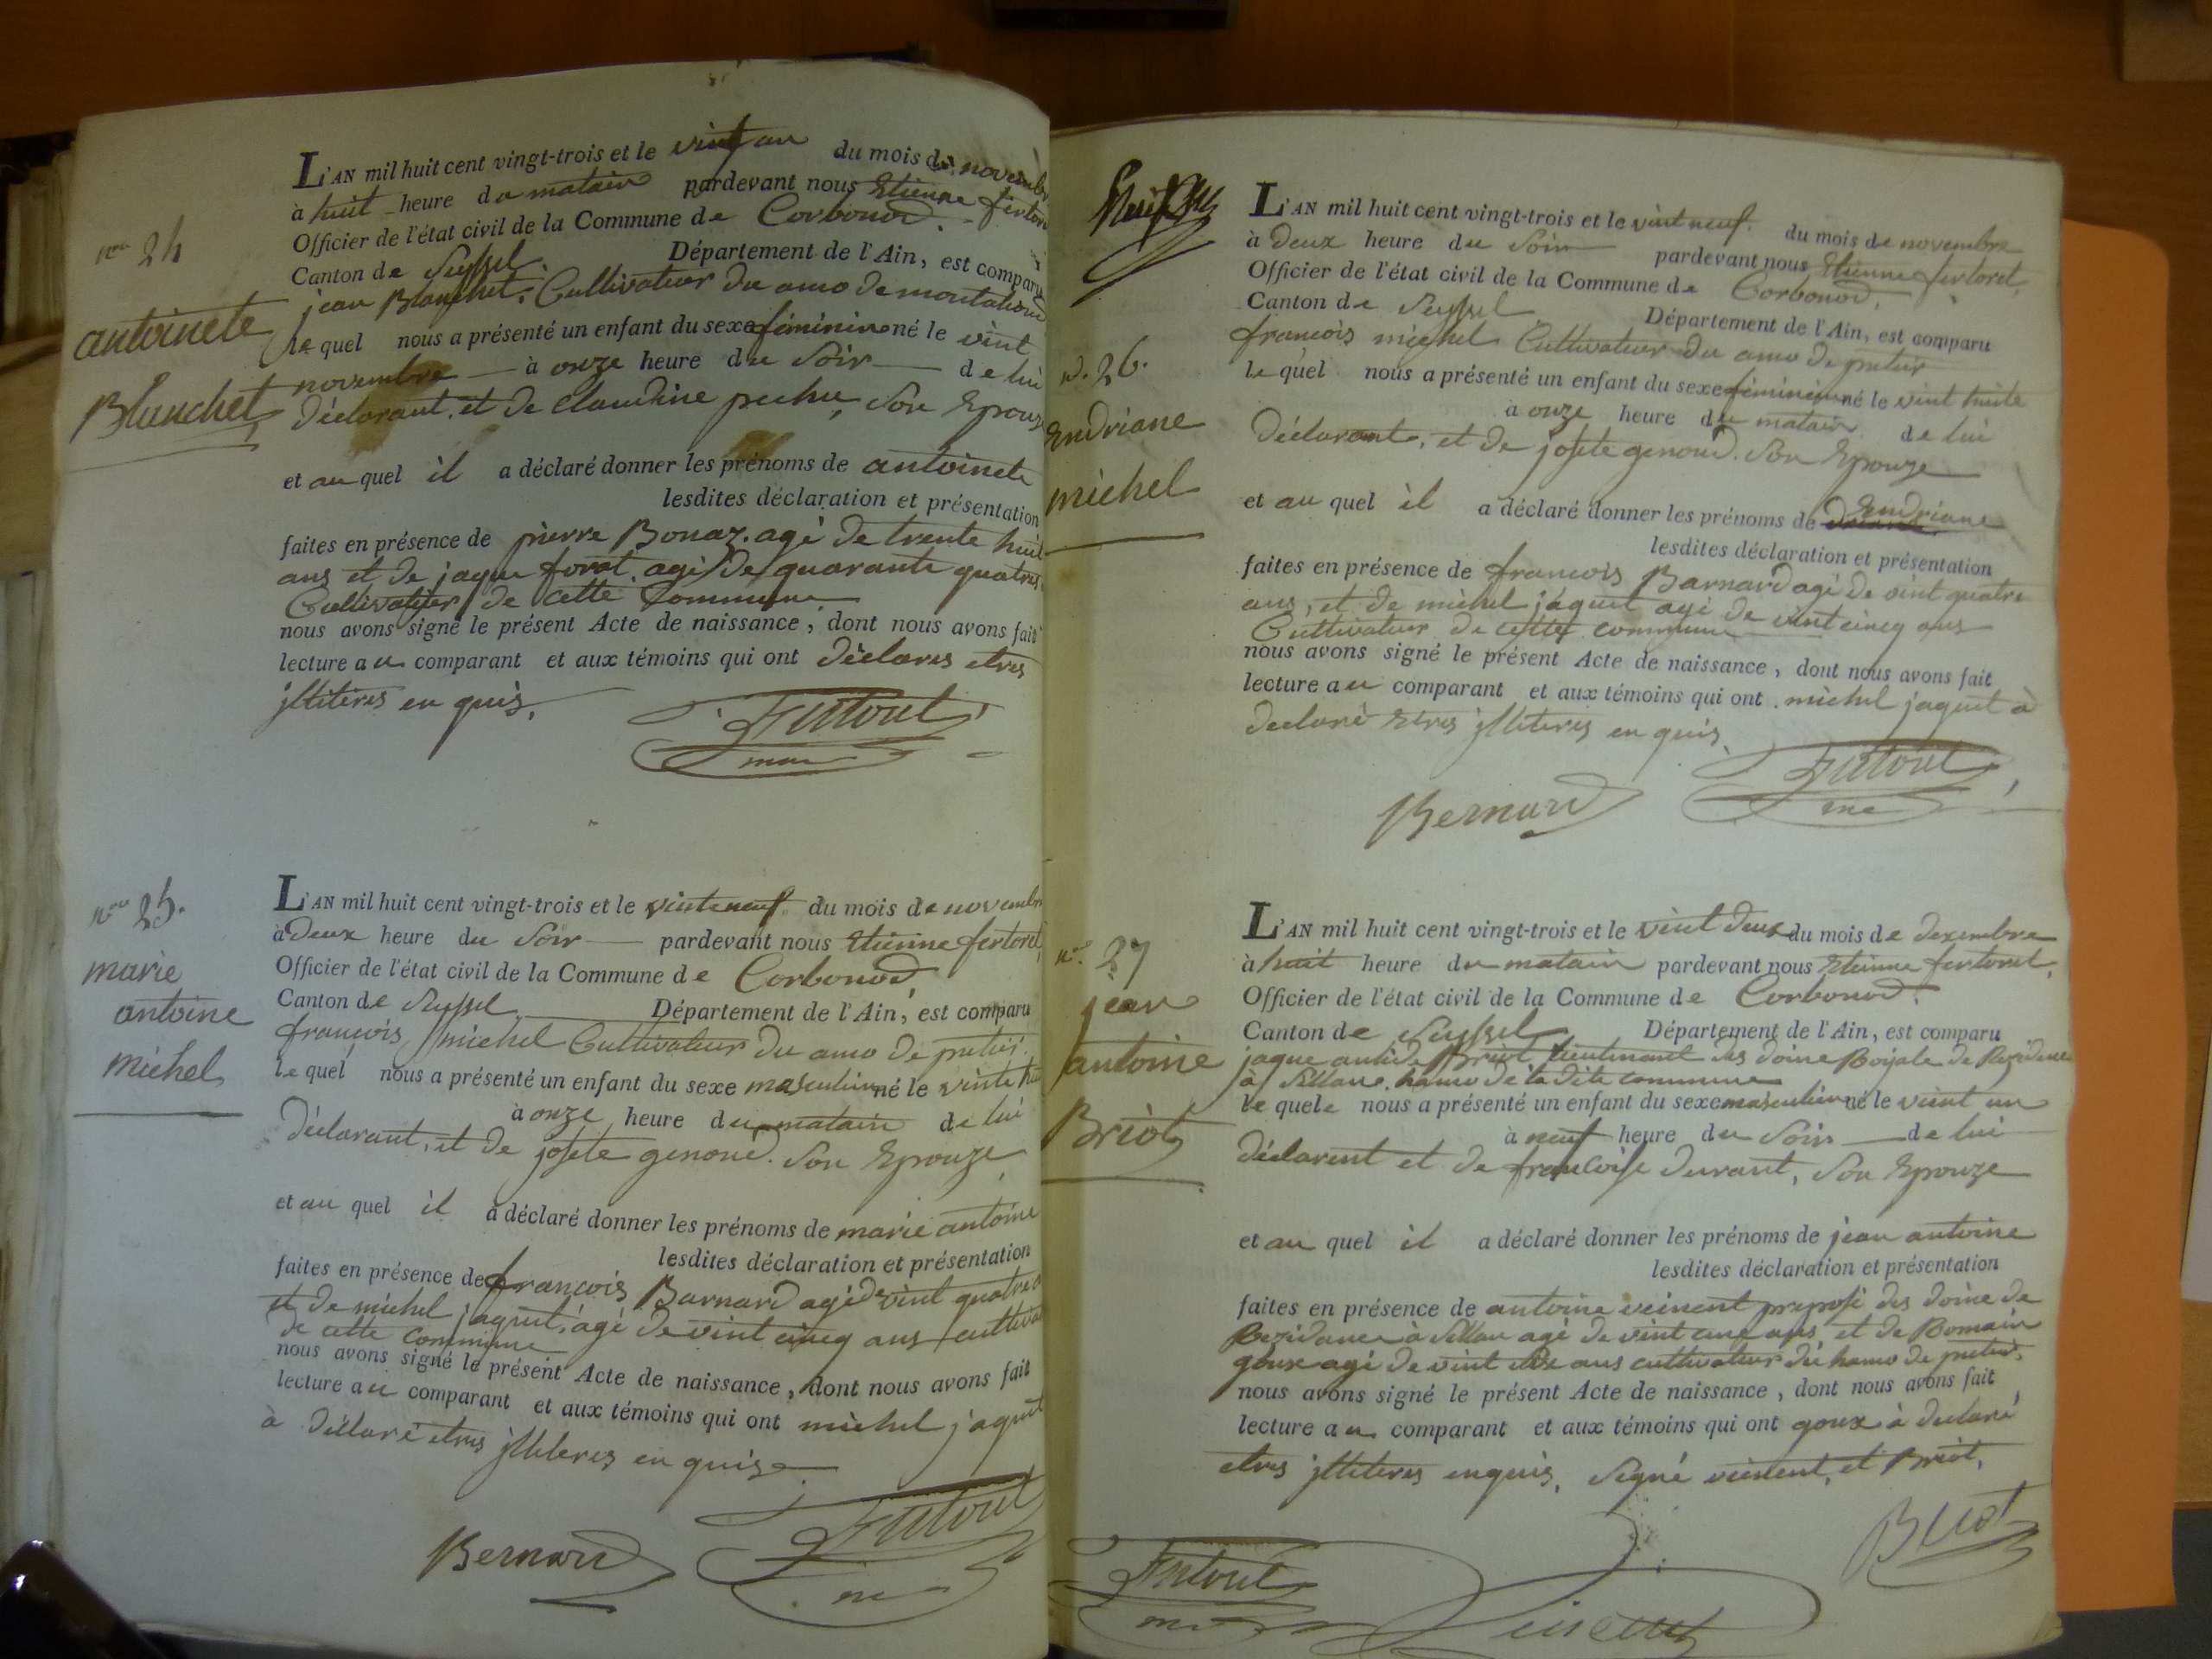 nro 24
antoinete
Blanchet
L'AN mil huit cent vingt-trois et le vint un du mois de novembre
à huit heure du matain pardevant nous Etienne fertoret
Officier de l'état civil de la Commune de Corbonod.
Canton de Seyssel Département de l'Ain, est comparu
jean Blanchet. Cultivateur du amo de
le quel nous a présenté un enfant du sexe féminin né le vint
novembre à onze heure du Soir de lui
déclarant. et de claudine Son Epouze
et au quel il a déclaré donner les prénoms de antoinete
lesdites déclaration et présentation
faites en présence de pierre Bonaz. agé de trente huit
ans et de jaque forat agé de quarante quatres
Cultivateur de cette Commune
nous avons signé le présent Acte de naissance, dont nous avons fait
lecture au comparant et aux témoins qui ont déclares etres
jlliteres en quis.
Fertoret
nro 25.
marie
antoine
michel
L'AN mil huit cent vingt-trois et le vinteneuf du mois de novembre
à Deux heure du Soir pardevant nous Etienne fertoret,
Officier de l'état civil de la Commune de Corbonod,
Canton de Seyssel Département de l'Ain, est comparu
francois michel Cultivateur du amo de
le quel nous a présenté un enfant du sexe masculin né le vinte
à onze heure du matain de lui
déclarant, et de josete genoud. Son Epouze
et au quel il a déclaré donner les prénoms de marie antoine
lesdites déclaration et présentation
faites en présence de francois Barnard agé de vint quatre
et de michel jaquet, agé de vint cincq ans
de cette commune
nous avons signé le présent Acte de naissance, dont nous avons fait
lecture au comparant et aux témoins qui ont michel jaquet
à déclaré etres jlliteres en quise
Bernard
Fertoret
n°. 26.
Endriane
michel
L'AN mil huit cent vingt-trois et le vint neuf. du mois de novembre
à Deux heure du Soir pardevant nous Etienne fertoret
Officier de l'état civil de la Commune de Corbonod,
Canton de Seyssel Département de l'Ain, est comparu
francois michel Cultivateur du amo de
le quel nous a présenté un enfant du sexe féminin né le vint huite
à onze heure du matain de lui
déclarant, et de josete genoud. Son Epouze
et au quel il a déclaré donner les prénoms de Endriane
lesdites déclaration et présentation
faites en présence de francois Barnard agé de vint quatre
ans, et de michel jaquet agé de vint cincq ans
Cultivateur de cette commune
nous avons signé le présent Acte de naissance, dont nous avons fait
lecture au comparant et aux témoins qui ont michel jaquet à
declaré Etres jlliteres en quis
Bernard
Fertoret
nro. 27
jean
antoine
Briot
L'AN mil huit cent vingt-trois et le vint deux du mois de dexembre
à huit heure du matain pardevant nous Etienne fertoret,
Officier de l'état civil de la Commune de Corbonod.
Canton de Seyssel Département de l'Ain, est comparu
jaque Briot lieutenant des doine Royale de Rezidence
à Sillan. hamo de la dite commune
le quele nous a présenté un enfant du sexe masculin né le vint un
à neuf heure du Soir de lui
déclarent et de francoise durant, Son Epouze
et au quel il a déclaré donner les prénoms de jean antoine
lesdites déclaration et présentation
faites en présence de antoine veinent preposé des doine de
Rezidance à Sillan agé de vint cinq ans et de Romain
goux agé de vint six ans cultivateur du hamo de
nous avons signé le présent Acte de naissance, dont nous avons fait
lecture au comparant et aux témoins qui ont goux à declaré
etres jlliteres enquis, Segné veinent, et Briot,
Briot
Fertoret